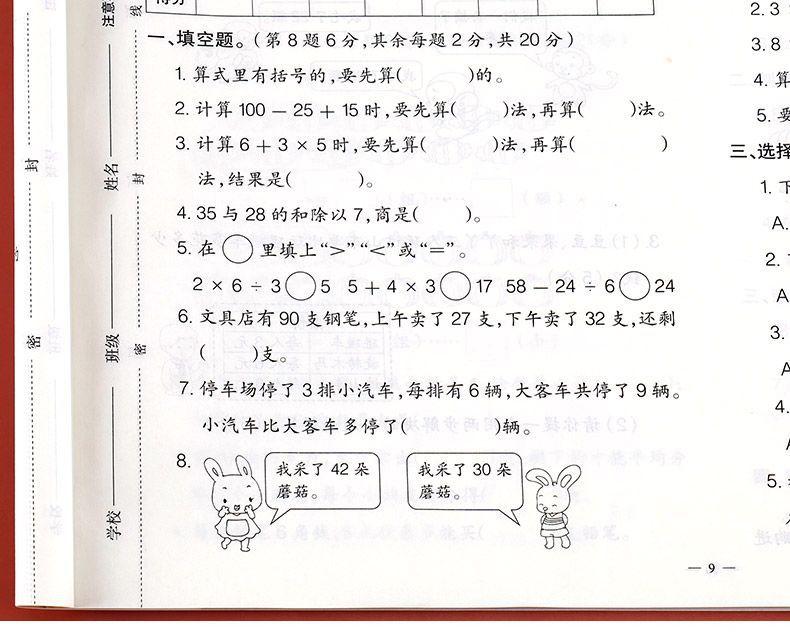 注意
线
得分
一、填空题。(第8题6分,其余每题2分,共20分)
1. 算式里有括号的,要先算(　　)的。
2. 计算 100 － 25 ＋ 15 时,要先算(　　)法,再算(　　)法。
3. 计算 6 ＋ 3 × 5 时,要先算(　　)法,再算(　　)
法,结果是(　　)。
4. 35 与 28 的和除以 7,商是(　　)。
5. 在○里填上“>”“<”或“=”。
2 × 6 ÷ 3○5 5 ＋ 4 × 3○17 58 － 24 ÷ 6○24
6. 文具店有90支钢笔,上午卖了27支,下午卖了32支,还剩
(　　)支。
7. 停车场停了3排小汽车,每排有6辆,大客车共停了9辆。
小汽车比大客车多停了(　　)辆。
8.
我采了42朵
蘑菇。
我采了30朵
蘑菇。
— 9 —
封
密
姓名
班级
学校
封
密
2. 3
3. 8
4. 算
5. 要
三、选择
1. 下
A.
2.
A
3.
A
4.
A
5.